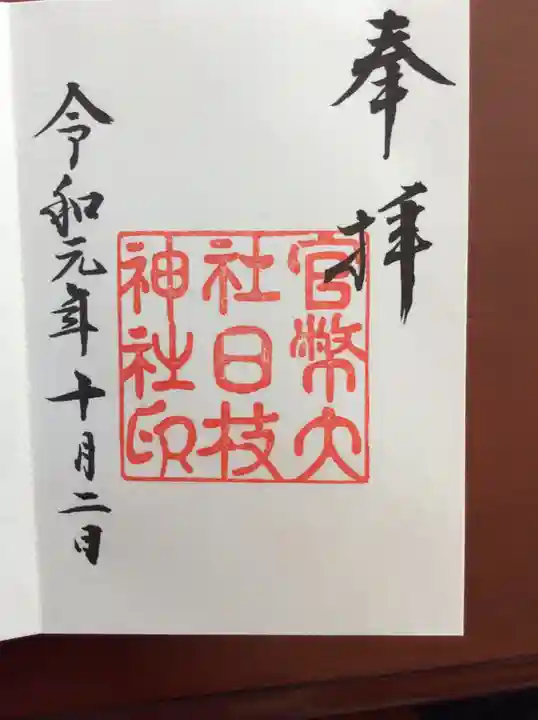 奉拝
官幣大
社日枝
神社印
令和元年十月二日